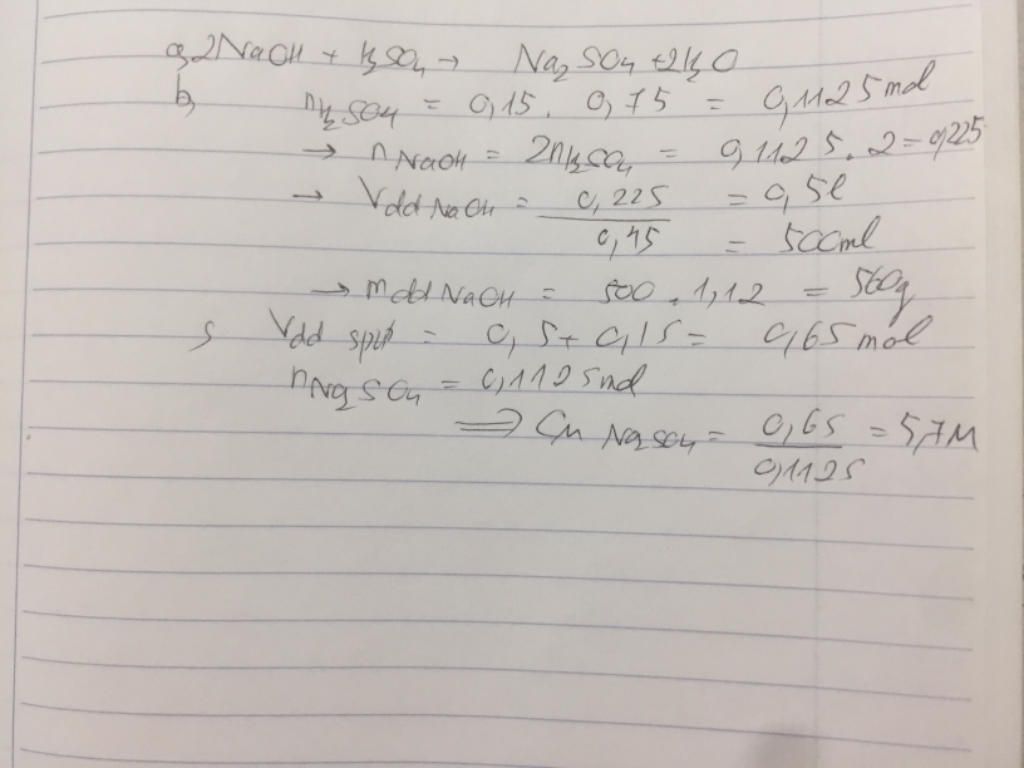 a, 2NaOH + H₂SO₄ → Na₂SO₄ + 2H₂O
b, nH₂SO₄ = 0,15 . 0,75 = 0,1125 mol
→ nNaOH = 2nH₂SO₄ = 0,1125 . 2 = 0,225
→ Vdd NaOH = 0,225 / 0,45 = 0,5l
= 500ml
→ mdd NaOH = 500 . 1,12 = 560g
c, Vdd spư = 0,5 + 0,15 = 0,65 mol
nNa₂SO₄ = 0,1125 mol
⟹ CM Na₂SO₄ = 0,65 / 0,1125 = 5,7M